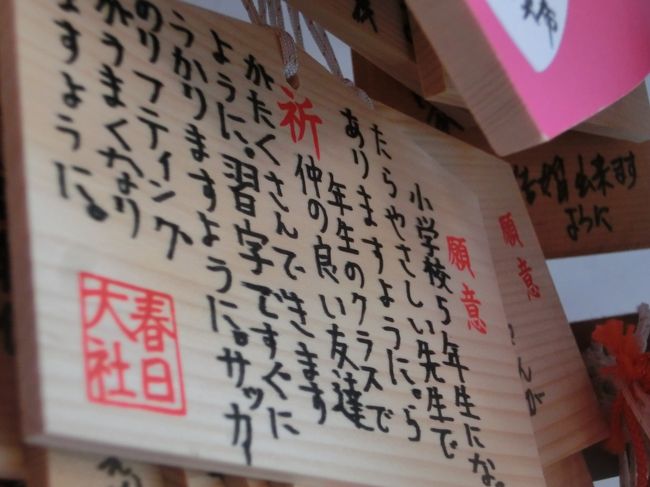 願意
小学校5年生になっ
たらやさしい先生で
ありますように。5
年生のクラスで
仲の良い友達
がたくさんできます
ように。習字ですぐに
うかりますように。サッカー
のリフティング
がうまくなり
ますように。
祈
春日
大社
願意
んが
結婚出来ます
ように